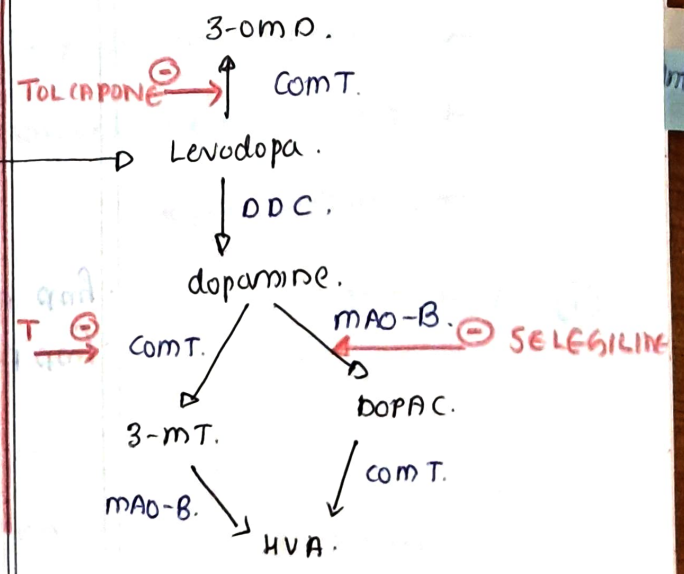 3-OMD.
TOLCAPONE ⊖ COMT.
Levodopa.
DDC.
dopamine.
MAO-B. ⊖ SELEGILINE
T ⊖ COMT.
DOPAC.
3-MT.
COMT.
MAO-B.
HVA.